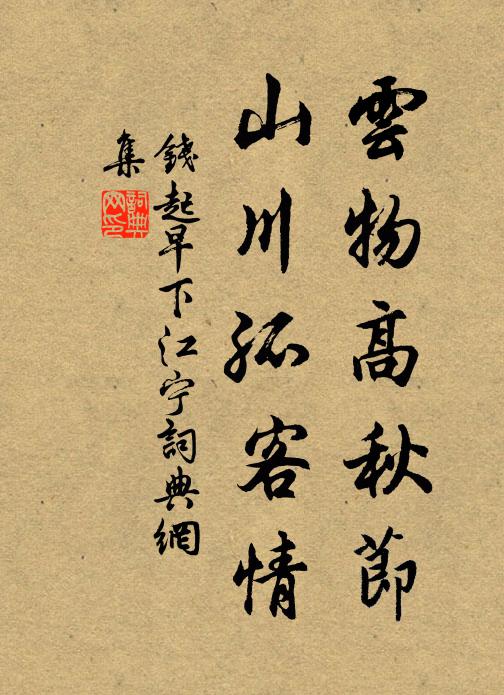 雲物高秋節
山川孤客情
錢起早下江寧詞典網
集
詞典網印